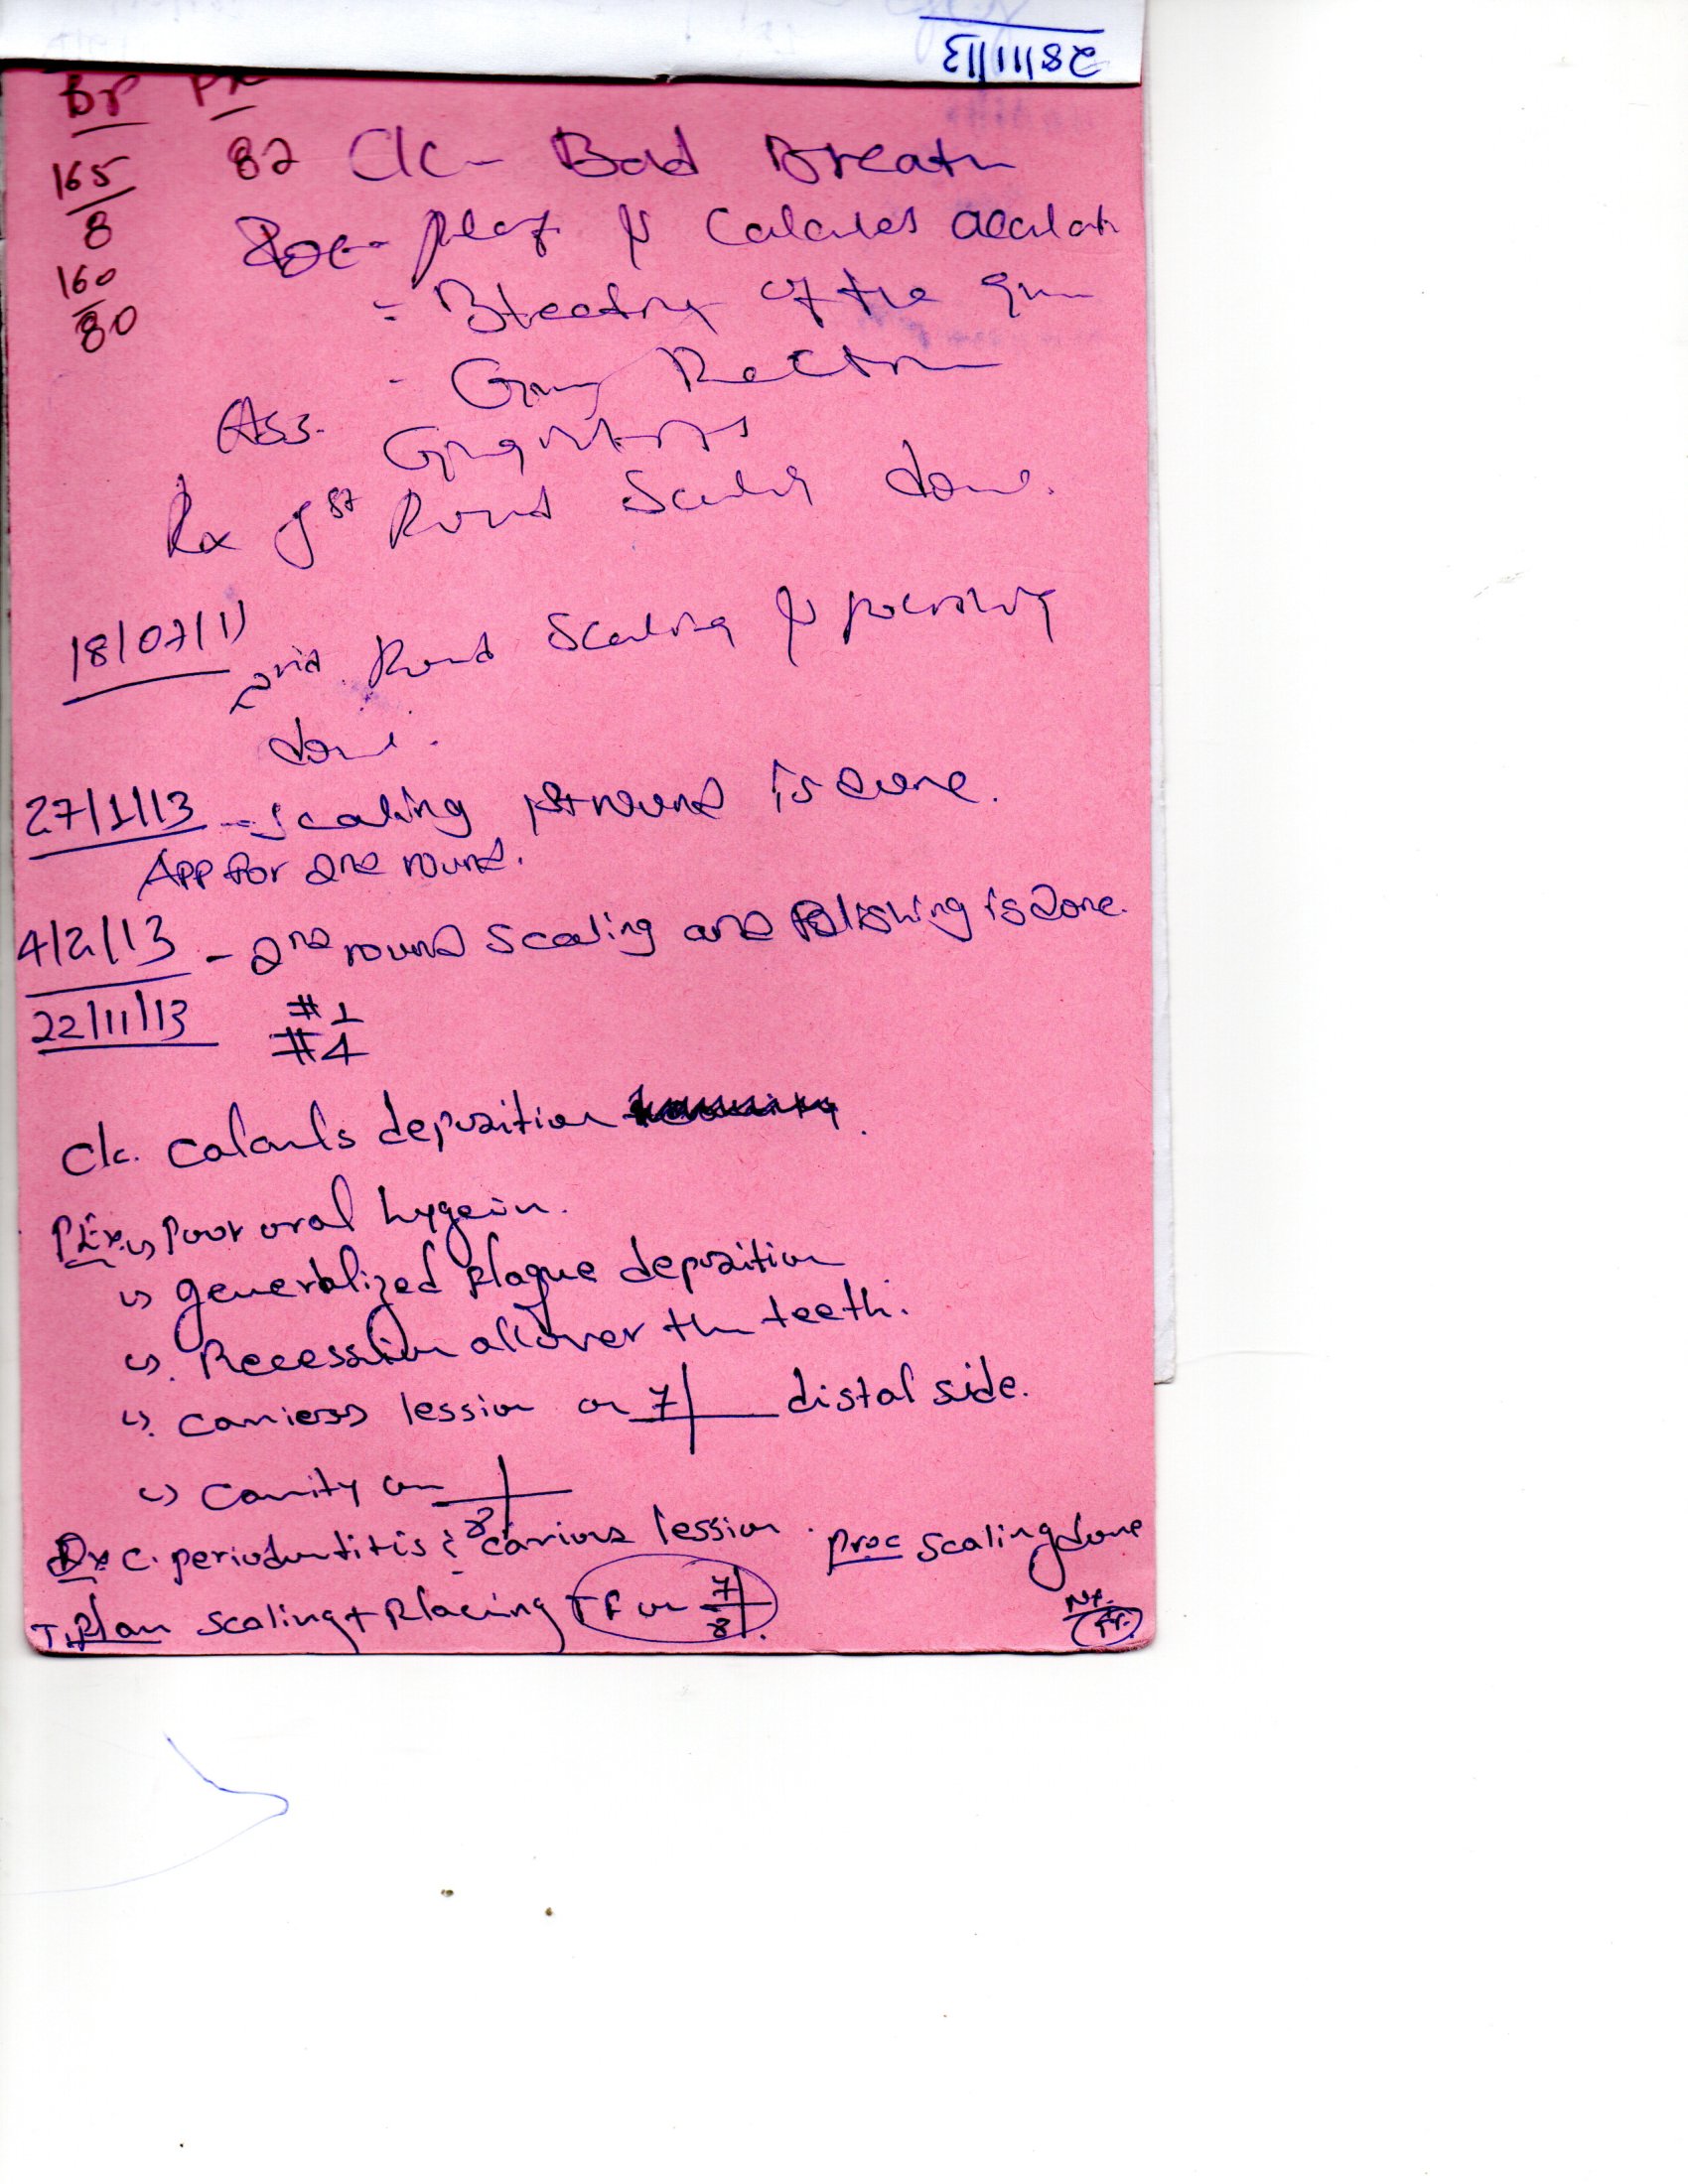 28/11/13
BP PR
165/8 82 C/c - Bad Breath
160/80
- plaq & Calculus
- Bleeding of the gum
- Gum
Ass. Gingivitis
Rx 1st Round Scaling done.
18/07/11
2nd Round Scaling & polishing
done.
27/1/13 - scaling 1st round is done.
App for 2nd round.
4/2/13 - 2nd round scaling and Polishing is done.
22/11/13 #1
#4
C/c. Calculs deposition
P.Ex. Poor oral hygein.
generalized plaque deposition
Recession all over the teeth.
lession on 7 distal side.
cavity on 8
Dx C. periodontitis carious lession. proc scaling done
T.plan scaling + Placing TF on 7 8